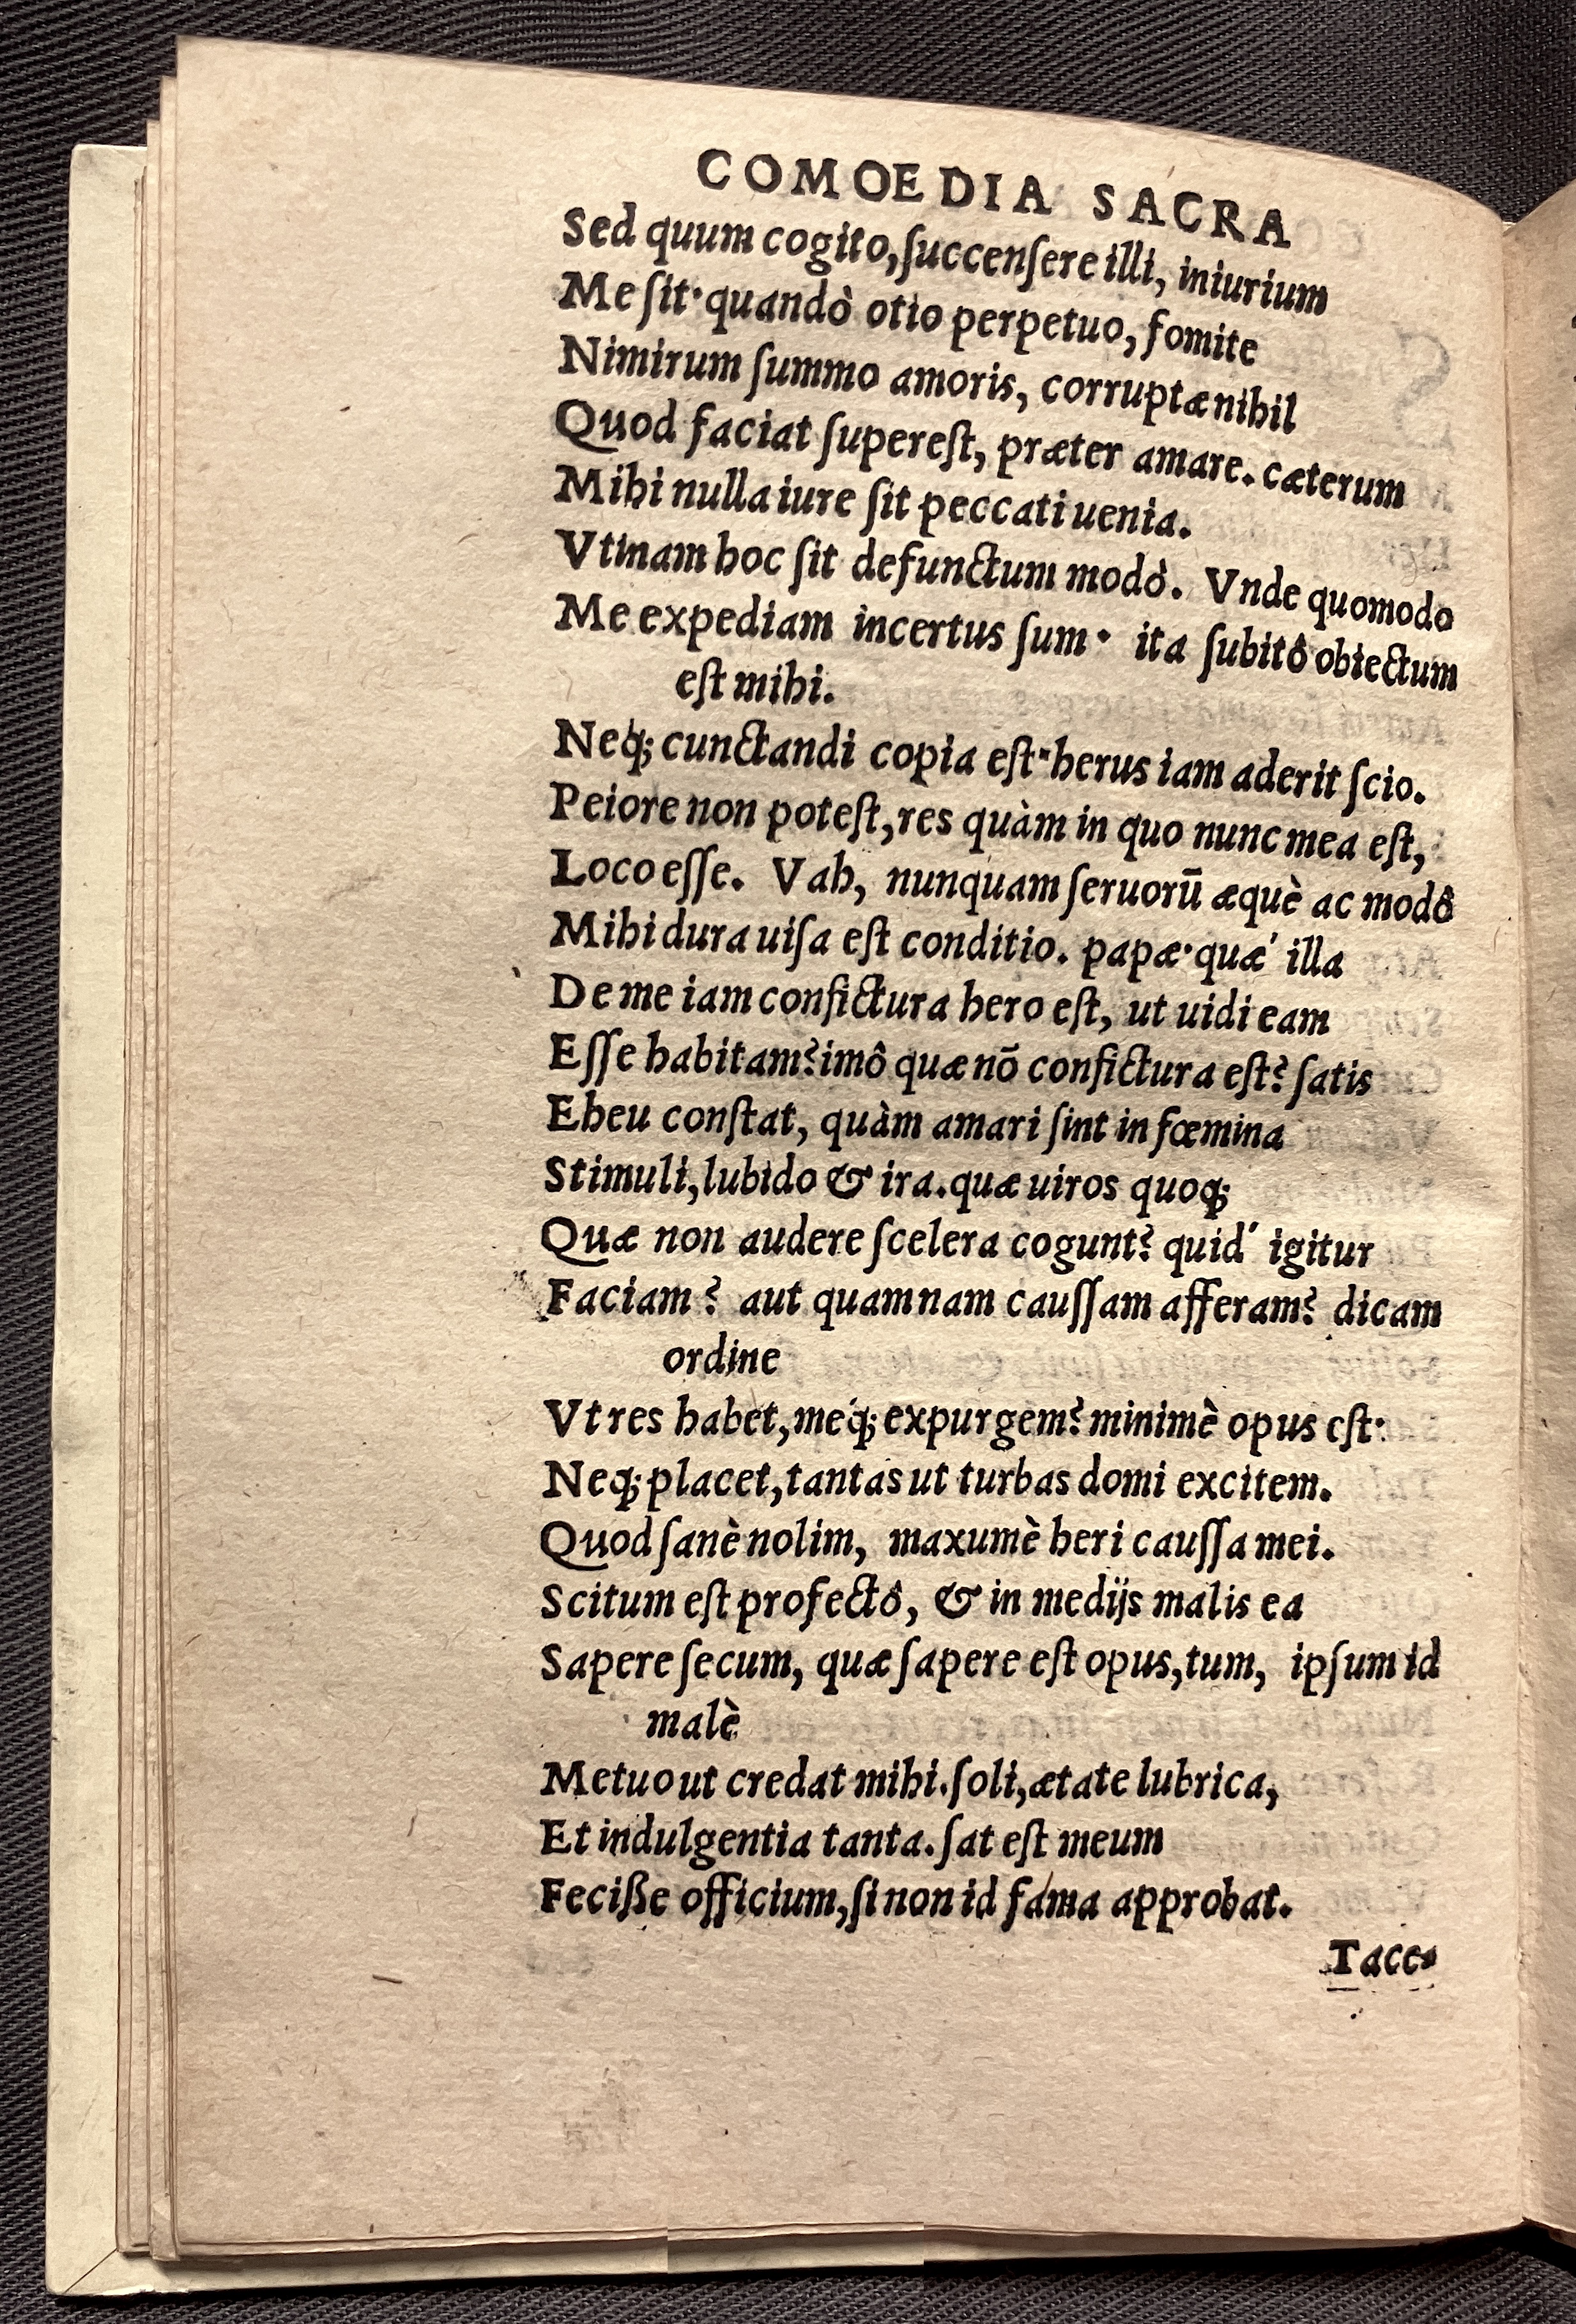 COMOEDIA SACRA
Sed quum cogito, ſuccenſere illi, iniurium
Me ſit· quandò otio perpetuo, fomite
Nimirum ſummo amoris, corruptæ nihil
Quod faciat ſupereſt, præter amare. cæterum
Mihi nulla iure ſit peccati uenia.
Vtinam hoc ſit defunctum modò. Vnde quomodo
Me expediam incertus ſum· ita ſubitô obiectum
eſt mihi.
Neq; cunctandi copia eſt· herus iam aderit ſcio.
Peiore non poteſt, res quàm in quo nunc mea eſt,
Loco eſſe. Vah, nunquam ſeruorū æquè ac modô
Mihi dura uiſa eſt conditio. papæ· quæ' illa
De me iam confictura hero eſt, ut uidi eam
Eſſe habitam? imô quæ nō confictura eſt? ſatis
Eheu conſtat, quàm amari ſint in fœmina
Stimuli, lubido & ira. quæ uiros quoq;
Quæ non audere ſcelera cogunt? quid' igitur
Faciam? aut quamnam cauſſam afferam? dicam
ordine
Vt res habet, meq́; expurgem? minimè opus eſt·
Neq; placet, tantas ut turbas domi excitem.
Quod ſanè nolim, maxumè heri cauſſa mei.
Scitum eſt profectô, & in medijs malis ea
Sapere ſecum, quæ ſapere eſt opus, tum, ipſum id
malè
Metuo ut credat mihi. ſoli, ætate lubrica,
Et indulgentia tanta. ſat eſt meum
Feciße officium, ſi non id fama approbat.
Tace-